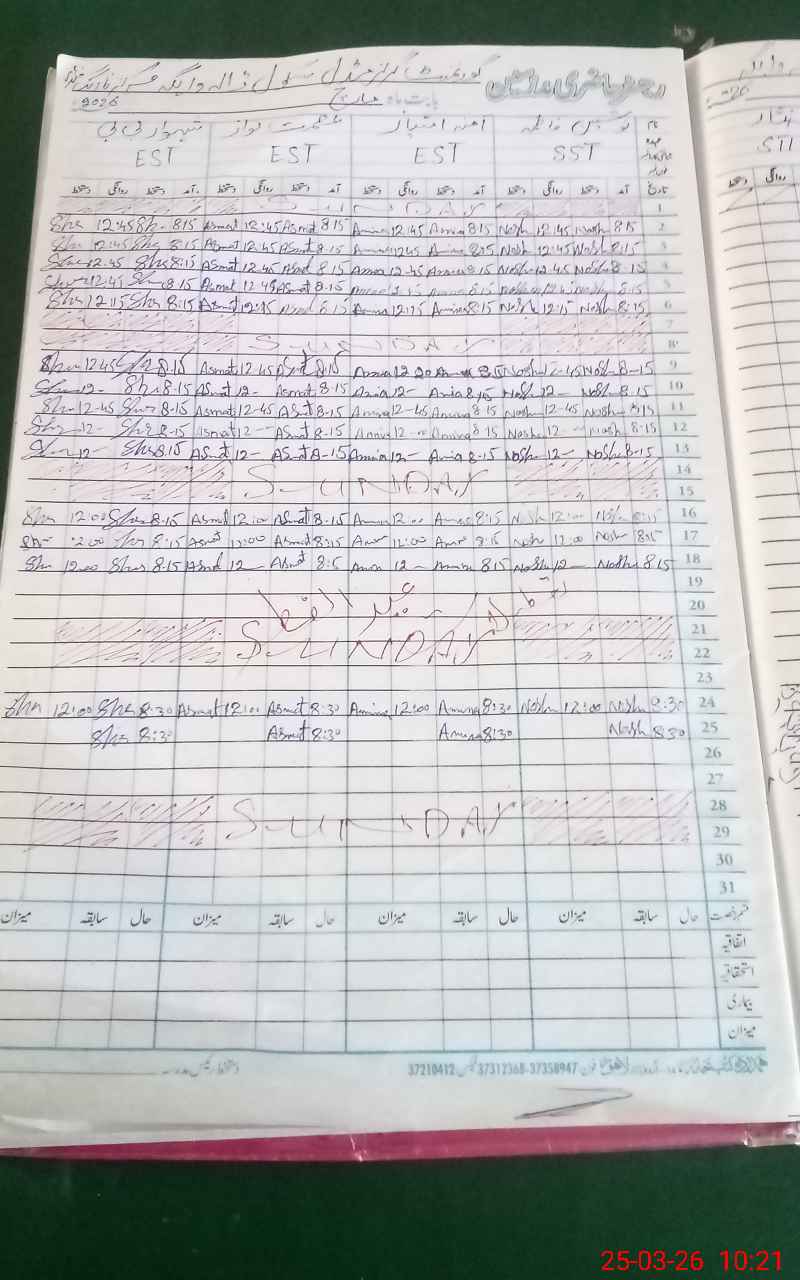 رجسٹر حاضری مدرسین گورنمنٹ گرلز مڈل سکول
بابت ماہ مارچ 2026
نام نوشین فاطمہ آمنہ امتیاز عصمت نواز شہوار بی بی
عہدہ SST EST EST EST STI
تاریخ آمد دستخط روانگی دستخط آمد دستخط روانگی دستخط آمد دستخط روانگی دستخط آمد دستخط روانگی دستخط
SUNDAY 1
Sha 12:45 Sha 8:15 Asmat 12:45 Asmat 8:15 Amina 12:45 Amina 8:15 Nosh 12:45 Nosh 8:15 2
Sha 12:45 Sha 8:15 Asmat 12:45 Asmat 8:15 Amina 12:45 Amina 8:15 Nosh 12:45 Nosh 8:15 3
Sha 12:45 Sha 8:15 Asmat 12:45 Asmat 8:15 Amina 12:45 Amina 8:15 Nosh 12:45 Nosh 8:15 4
Sha 12:45 Sha 8:15 Asmat 12:45 Asmat 8:15 5
Sha 12:15 Sha 8:15 Asmat 12:15 Asmat 8:15 Amina 12:15 Amina 8:15 Nosh 12:15 Nosh 8:15 6
7
SUNDAY 8
Sha 12:45 Sha 8:15 Asmat 12:45 Asmat 8:15 Amina Nosh 12:45 Nosh 8-15 9
Sha 12- Sha 8:15 Asmat 12- Asmat 8:15 Amina 12- Amina 8:15 Nosh 12- Nosh 8:15 10
Sha 12-45 Sha 8-15 Asmat 12-45 Asmat 8-15 Amina 12-45 Amina 8:15 Nosh 12-45 Nosh 8:15 11
Sha 12- Sha 8-15 Asmat 12- Asmat 8-15 Amina 12- Amina 8:15 Nosh 12- Nosh 8-15 12
Sha 12- Sha 8:15 Asmat 12- Asmat 8-15 Amina 12- Amina 8-15 Nosh 12- Nosh 8-15 13
14
SUNDAY 15
Sha 12:00 Sha 8:15 Asmat 12:00 Asmat 8:15 Amina 12:00 Amina 8:15 Nosh 12:00 Nosh 8:15 16
Sha 12:00 Sha 8:15 Asmat 12:00 Asmat 8:15 Amn 12:00 Amn 8:15 Nosh 12:00 Nosh 8:15 17
Sha 12:00 Sha 8:15 Asmat 12- Asmat 8:15 Amin 12- Amina 8:15 Nosh 12- Nosh 8:15 18
19
تعطیلات عید الفطر 20
21
SUNDAY 22
23
Sha 12:00 Sha 8:30 Asmat 12:00 Asmat 8:30 Amina 12:00 Amina 8:30 Nosh 12:00 Nosh 8:30 24
Sha 8:30 Asmat 8:30 Amina 8:30 Nosh 8:30 25
26
27
28
SUNDAY 29
30
31
قسم رخصت حال سابقہ میزان حال سابقہ میزان حال سابقہ میزان حال سابقہ میزان
اتفاقیہ
استحقاقیہ
بیماری
میزان
فون 37312368-37358947 فیکس 37210412
25-03-26 10:21